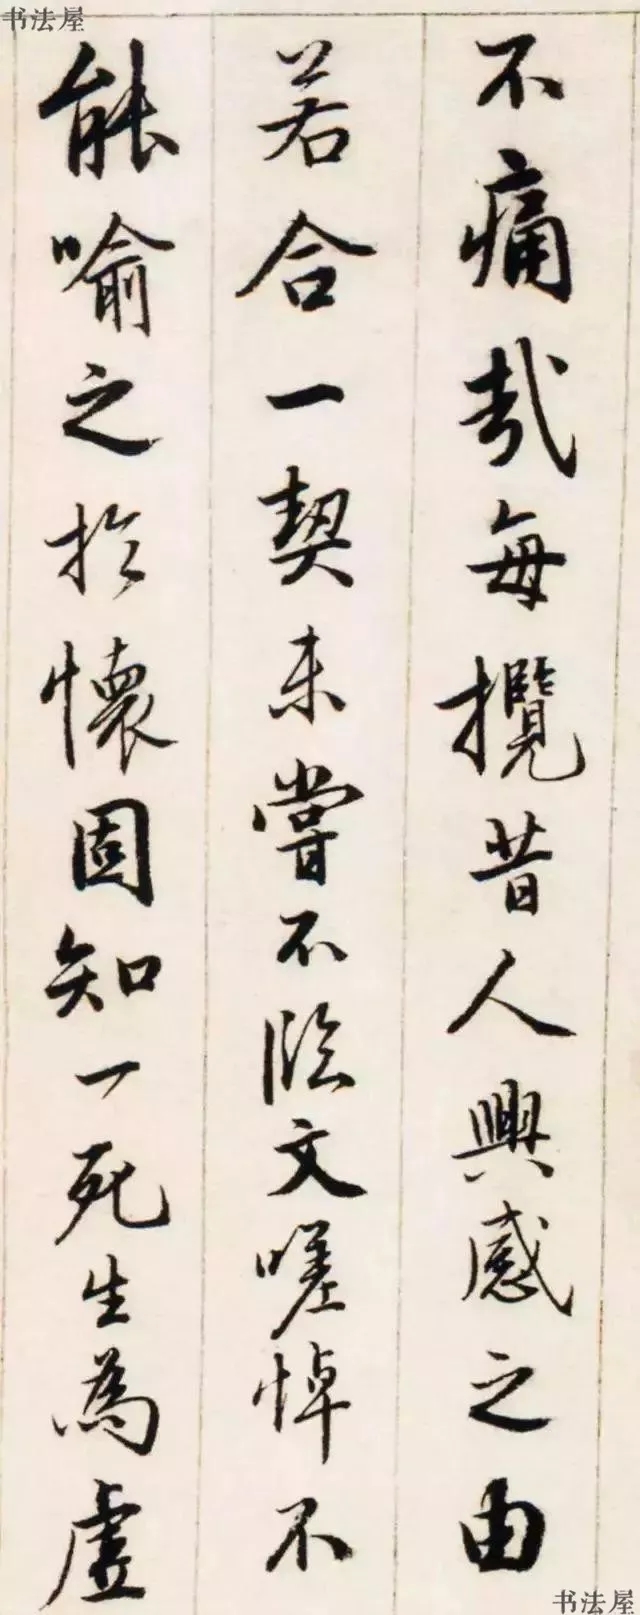 书法屋
不痛哉每攬昔人興感之由
若合一契未嘗不臨文嗟悼不
能喻之於懷固知一死生為虛
书法屋